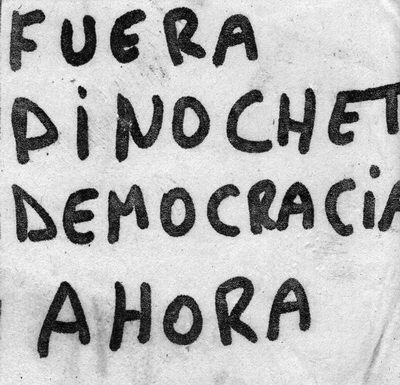 FUERA
PINOCHET
DEMOCRACIA
AHORA